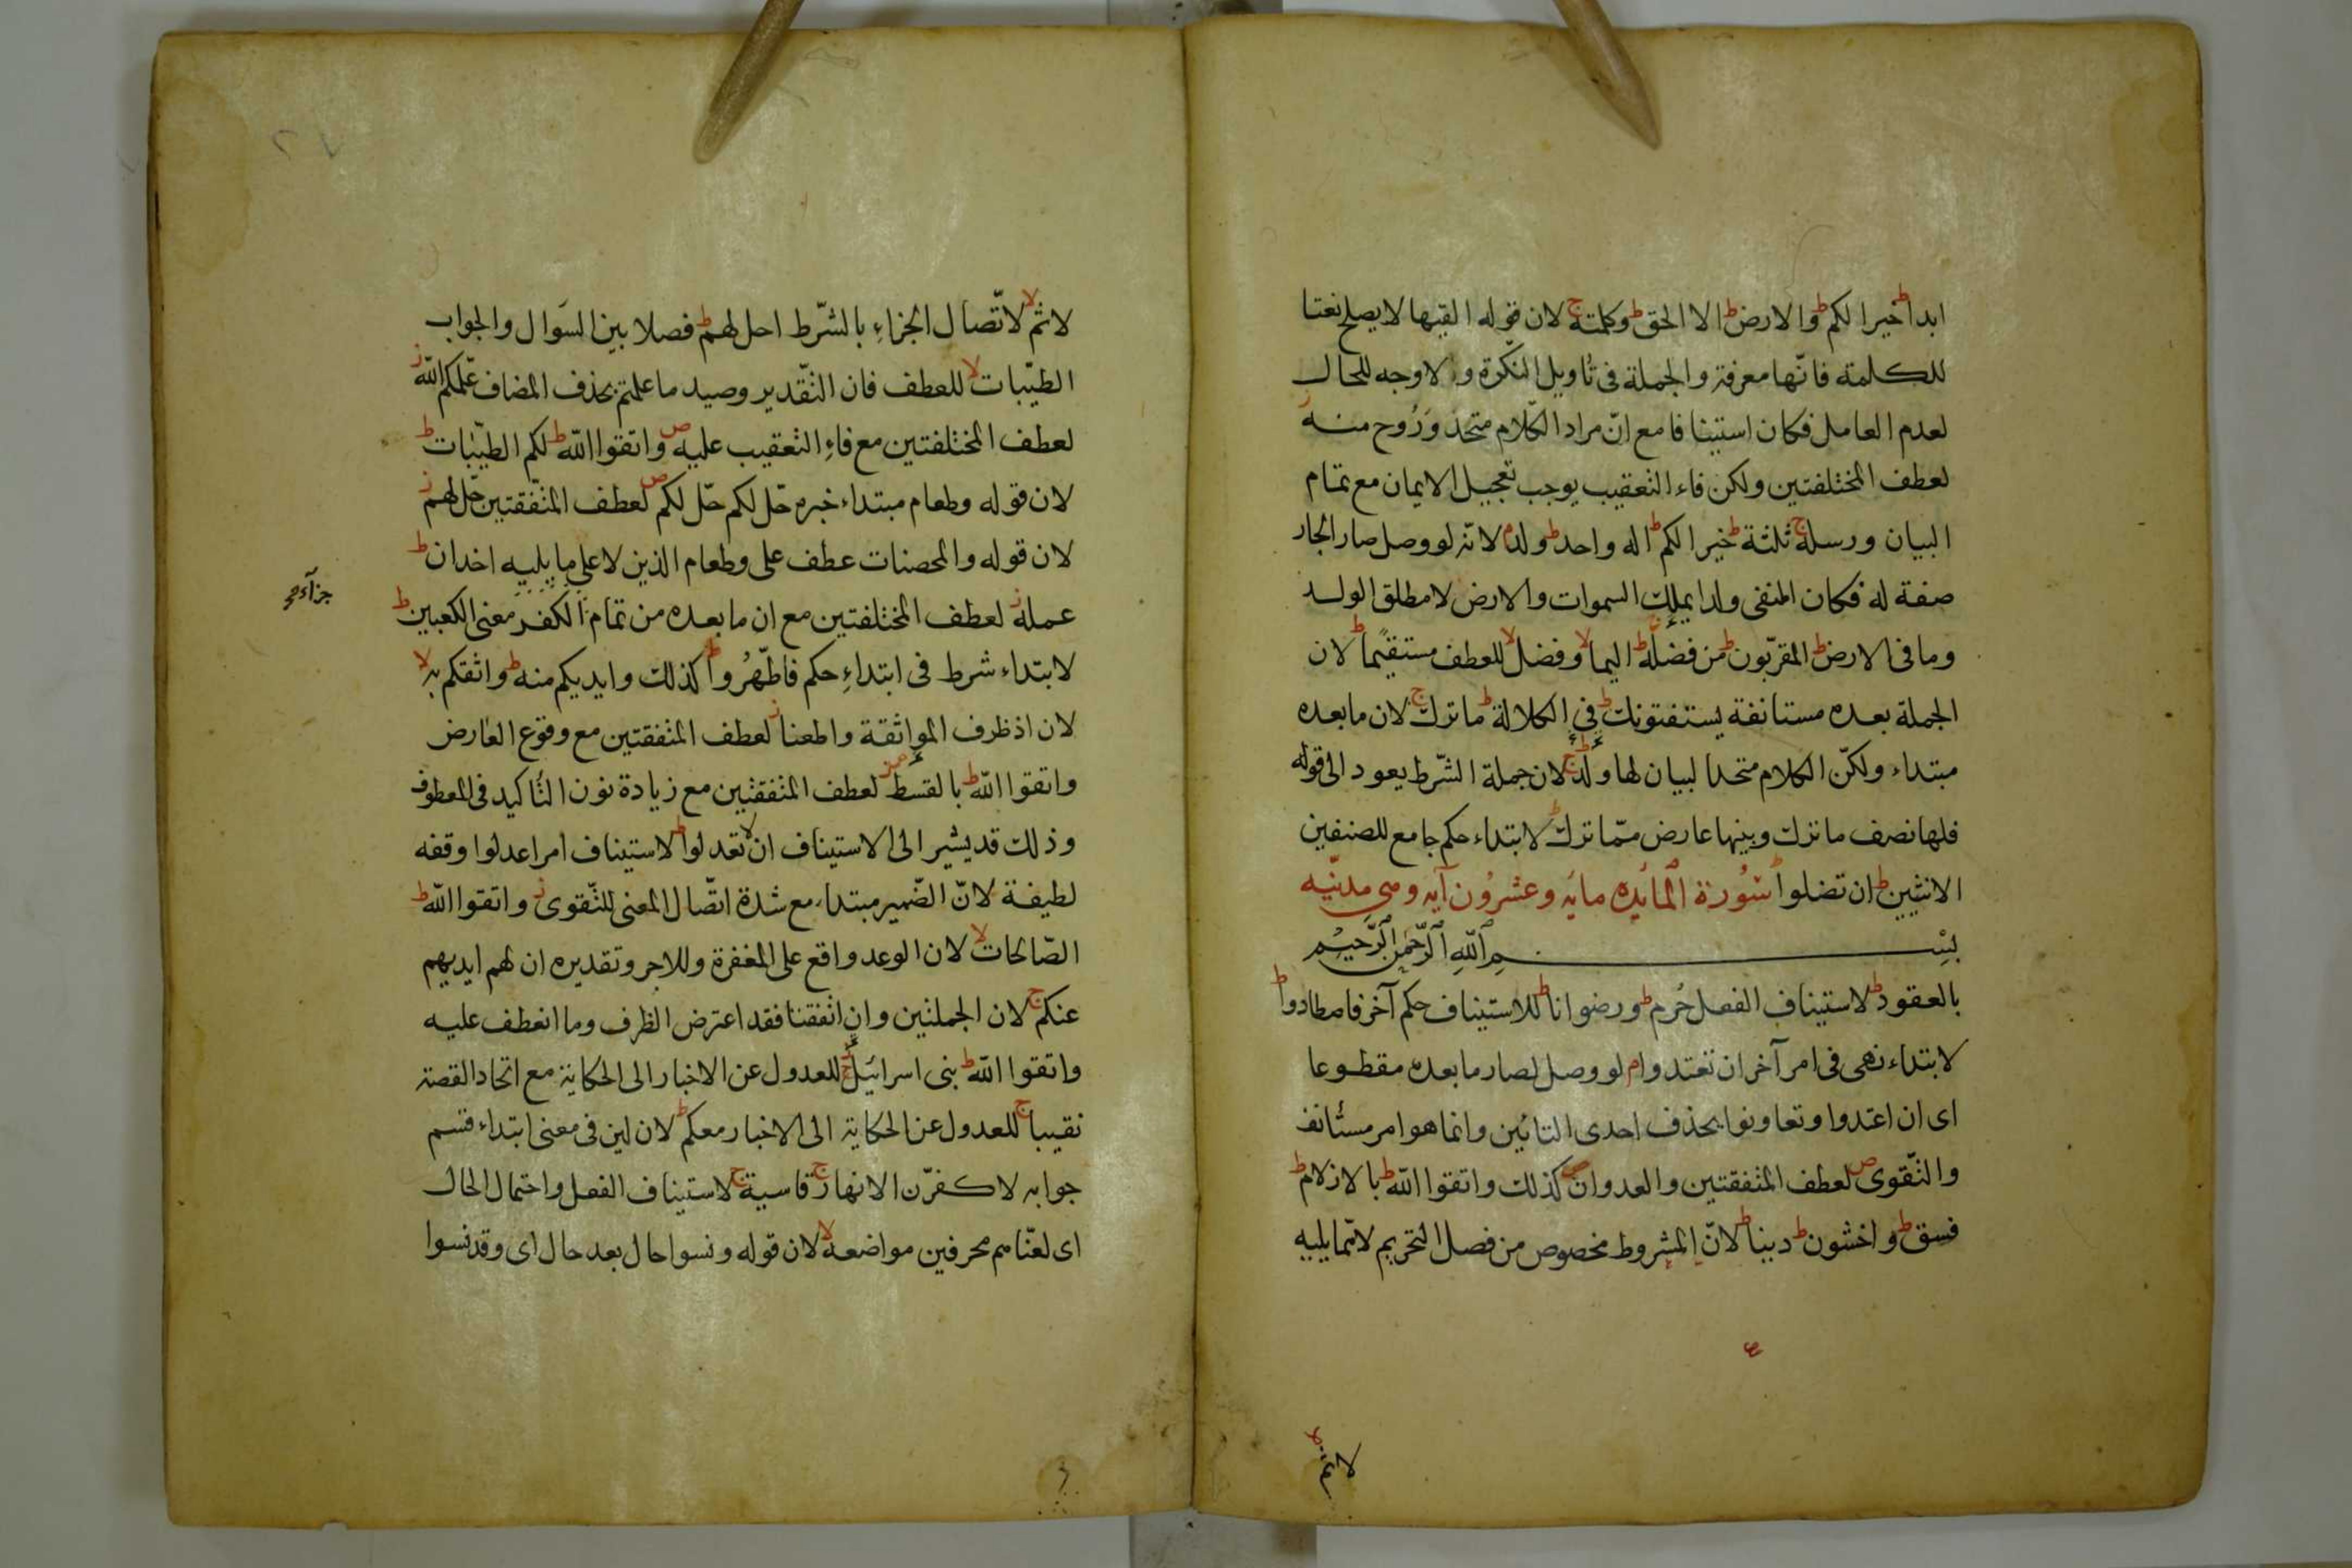 ابدا ط خيرا لكم ط والارض ط الا الحق ط وكلمته ج لان قوله القيها لا يصلح نعتا
للكلمة فانها معرفة والجملة فى تأويل النكرة ولا وجه للحال
لعدم العامل فكان استينافا مع ان مراد الكلام متحد وروح منه ز
لعطف المختلفتين ولكن فاء التعقيب يوجب تعجيل الايمان مع تمام
البيان ورسله ج ثلثة ط خيرا لكم ط اله واحد ط ولد م لانه لو وصل صار الجار
صفة له فكان المنفى ولدا يملك السموات والارض لا مطلق الولد
وما فى الارض ط المقربون ط من فضله ط اليما لا وفضل لا للعطف مستقيما ط لان
الجملة بعده مستانفة يستفتونك ط فى الكلالة ط ما ترك ج لان ما بعده
مبتداء ولكن الكلام متحدا لبيان لها ولد ج لان جملة الشرط يعود الى قوله
فلها نصف ما ترك وبينهما عارض مما ترك ط لابتداء حكم جامع للصنفين
الانثيين ط ان تضلوا ط سورة المائده مايه وعشرون آيه وهى مدنيه
بسم الله الرحمن الرحيم
بالعقود ط لاستيناف الفعل حرم ط ورضوانا ط للاستيناف حكم آخر فاصطادوا ط
لابتداء نهى فى امر آخر ان تعتدوا م لو وصل لصار ما بعده مقطوعا
اى ان اعتدوا وتعاونوا بحذف احدى التائين وانما هو امر مستأنف
والتقوى ص لعطف المتفقتين والعدوان ص كذلك واتقوا الله ط بالازلام ط
فسق ط واخشون ط دينا ط لان المشروط مخصوص من فصل التحريم لا مما يليه
لاثم لا لاتصال الجزاء بالشرط احل لهم ط فصلا بين السوال والجواب
الطيبات لا للعطف فان التقدير وصيد ما علمتم بحذف المضاف علمكم الله ز
لعطف المختلفتين مع فاء التعقيب عليه ص واتقوا الله ط لكم الطيبات ط
لان قوله وطعام مبتداء خبره حل لكم حل لكم ص لعطف المتفقتين حل لهم ز
لان قوله والمحصنات عطف على وطعام الذين لا على ما يليه اخدان ط
عمله ز لعطف المختلفتين مع ان ما بعده من تمام الكفر معنى الكعبين ط
جزاء صح
لابتداء شرط فى ابتداء حكم فاطهروا ط كذلك وايديكم منه ط واثقكم به لا
لان اذ ظرف المواثقة واطعنا ز لعطف المتفقتين مع وقوع العارض
واتقوا الله ط بالقسط ز لعطف المتفقتين مع زيادة نون التأكيد فى المعطوف
وذلك قد يشير الى الاستيناف ان لا تعدلوا ط لاستيناف امر اعدلوا وقفه
لطيفة لان الضمير مبتداء مع شدة اتصال المعنى للتقوى ز واتقوا الله ط
الصالحات لا لان الوعد واقع على المغفرة وللاجر وتقديره ان لهم ايديهم
عنكم ج لان الجملتين وان اتفقتا فقد اعترض الظرف وما انعطف عليه
واتقوا الله ط بنى اسرائيل ج للعدول عن الاخبار الى الحكاية مع اتحاد القصة
نقيبا ج للعدول عن الحكاية الى الاخبار معكم ط لان لين فى معنى ابتداء قسم
جوابه لاكفرن الانهار ج قاسية ج لاستيناف الفعل واحتمال الحال
اى لعناهم محرفين مواضعه لا لان قوله ونسوا حال بعد حال اى وقد نسوا